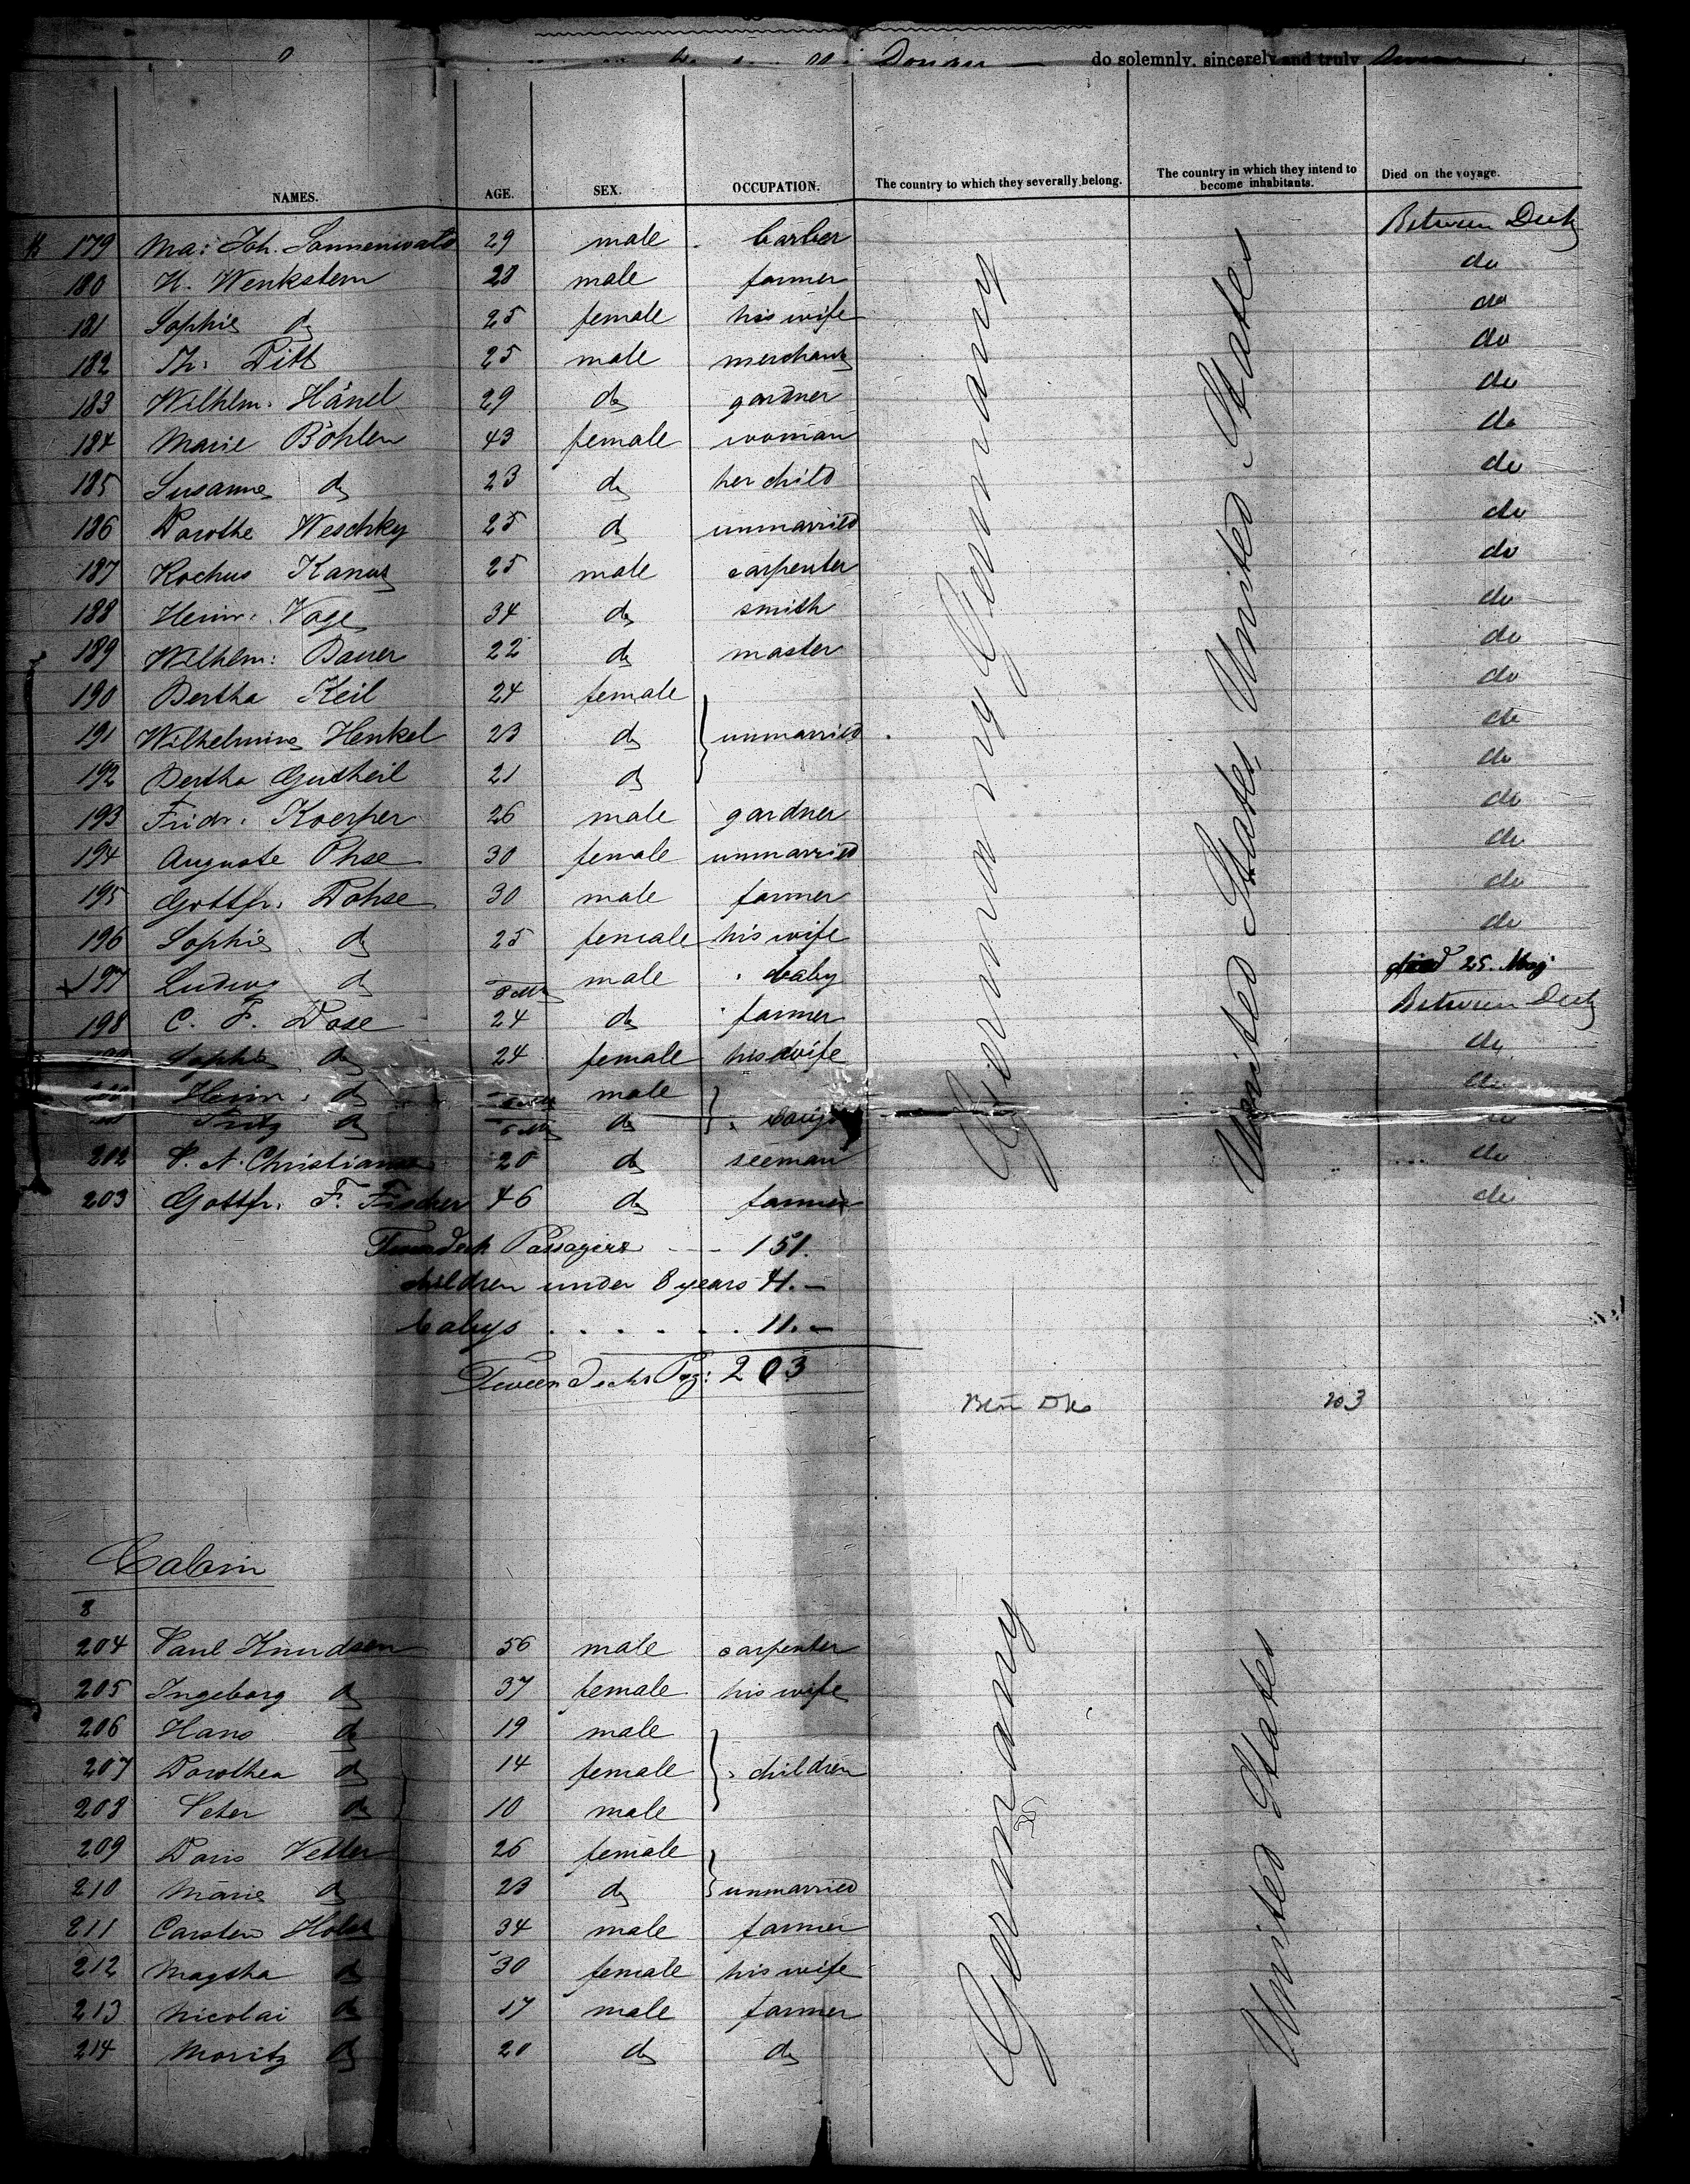 Donau do solemnly, sincerely and truly
NAMES. AGE. SEX. OCCUPATION. The country to which they severally belong. The country in which they intend to become inhabitants. Died on the voyage.
179 Ma: Joh. Sonnenwald 29 male barber Between Deck
180 H. Wenkstern 28 male farmer do
181 Sophie do 25 female his wife do
182 Th: Ditt 25 male merchant do
183 Wilhlm. Hänel 29 do gardner do
184 Marie Böhlen 43 female woman do
185 Susanne do 23 do her child do
186 Dorothe Weschky 25 do unmarried do
187 Rochus Kanus 25 male carpenter do
188 Heinr. Vage 34 do smith do
189 Wilhlm: Bauer 22 do master do
190 Bertha Keil 24 female do
191 Wilhelmine Henkel 23 do unmarried do
192 Bertha Gutheil 21 do do
193 Fridr. Koerper 26 male gardner do
194 Auguste Ohse 30 female unmarried do
195 Gottfr. Dohse 30 male farmer do
196 Sophie do 25 female his wife do
197 Ludwg do 8 Mt male baby died 25. May
198 C. F. Dose 24 do farmer Between Deck
199 Sophie do 24 female his wife do
Heinr. do male do
Fritz do 6 Mt do babys do
202 P. N. Christianse 20 do seeman do
203 Gottfr. F. Fischer 46 do farmer do
Germany Germany
United States United States
Tweendeck Passagiers 151.
children under 8 years 41.–
babys . . . . . . 11.–
Tween decks Pgs: 203
Btn Dks 203
Cabin
8
204 Paul Knudsen 56 male carpenter
205 Ingeborg do 37 female his wife
206 Hans do 19 male
207 Dorothea do 14 female children
208 Peter do 10 male
209 Doris Vetter 26 female
210 Marie do 23 do unmarried
211 Carsten Holst 34 male farmer
212 Magtha do 30 female his wife
213 Nicolai do 17 male farmer
214 Moritz do 20 do do
Germany
United States